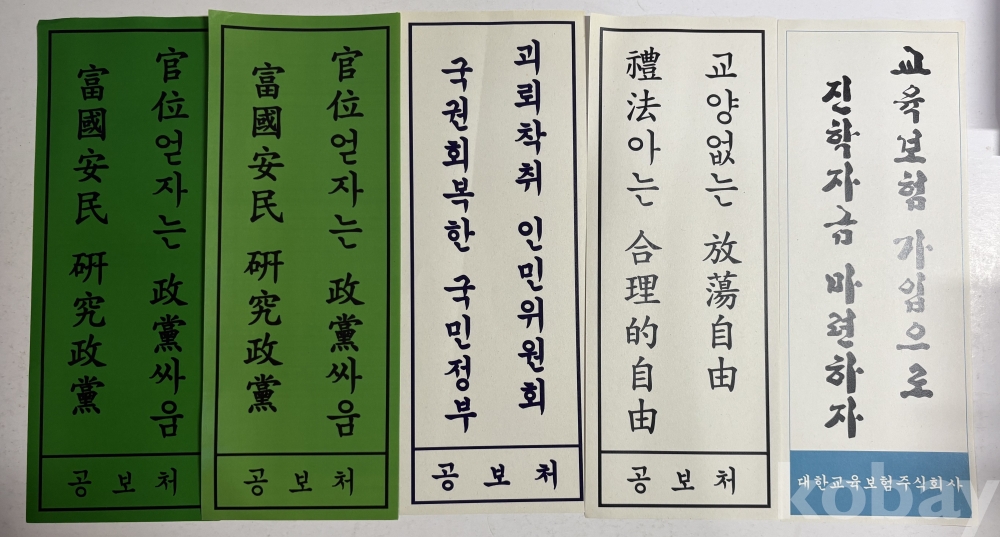 官位얻자는 政黨싸움
富國安民 硏究政黨
공보처
官位얻자는 政黨싸움
富國安民 硏究政黨
공보처
괴뢰착취 인민위원회
국권회복한 국민정부
공보처
교양없는 放蕩自由
禮法아는 合理的自由
공보처
교육보험 가입으로
진학자금 마련하자
대한교육보험주식회사
kobay